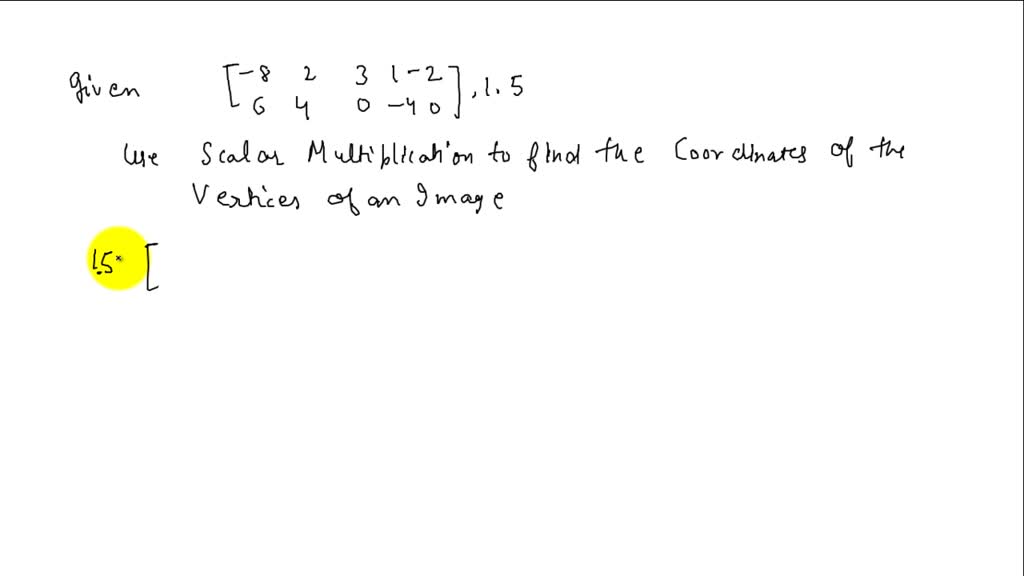 Given [-8 2 3 1 -2
6 4 0 -4 0], 1.5
Use Scalar Multiplication to find the Coordinates of the
Vertices of an Image
1.5× [